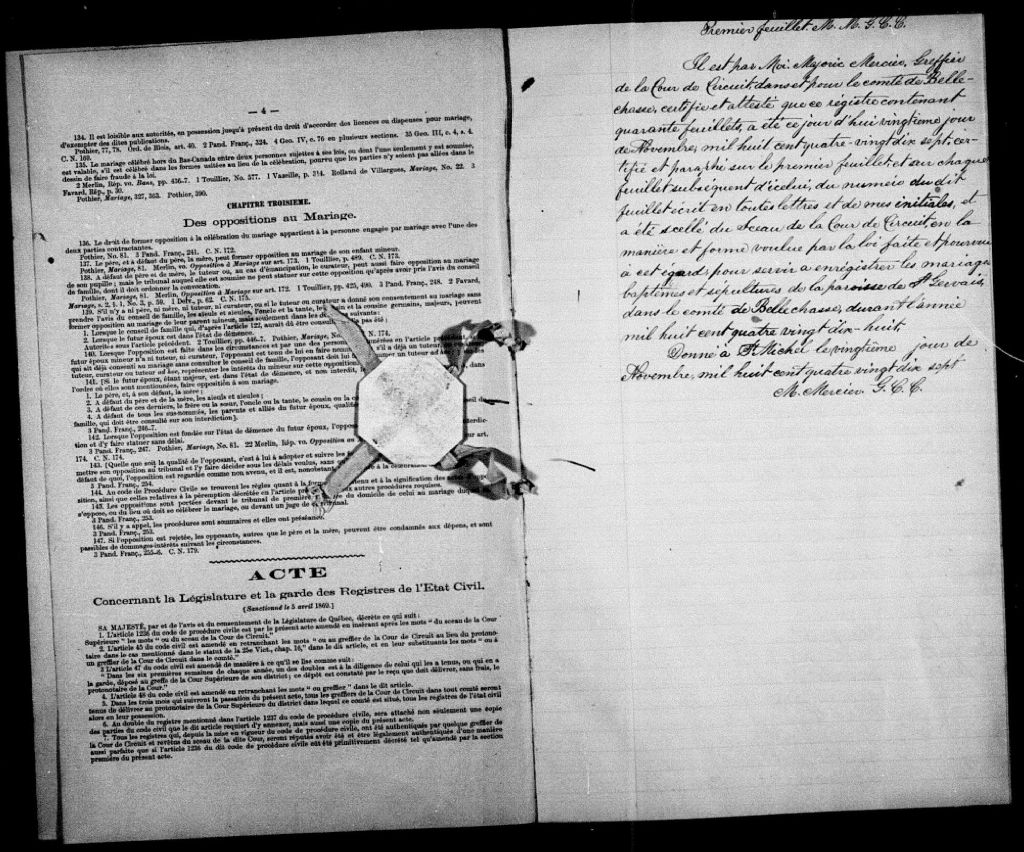 — 4 —
134. Il est loisible aux autorités, en possession jusqu'à présent du droit d'accorder des licences ou dispenses pour mariage,
d'exempter des dites publications.
Pothier, 77, 78. Ord. de Blois, art. 40. 2 Pand. Franç., 324. 4 Geo. IV, c. 76 en plusieurs sections. 35 Geo. III, c. 4, s. 4.
C. N. 169.
135. Le mariage célébré hors du Bas-Canada entre deux personnes sujettes à ses lois, ou dont l'une seulement y est soumise,
est valable, s'il est célébré dans les formes usitées au lieu de la célébration, pourvu que les parties n'y soient pas allées dans le
dessein de faire fraude à la loi.
2 Merlin, Rép. vo. Bans, pp. 436-7. 1 Touillier, No. 577. 1 Vazeille, p. 314. Rolland de Villargues, Mariage, No. 22. 3
Favard, Rép., p. 50.
Pothier, Mariage, 327, 363. Pothier, 390.
CHAPITRE TROISIEME.
Des oppositions au Mariage.
136. Le droit de former opposition à la célébration du mariage appartient à la personne engagée par mariage avec l'une des
deux parties contractantes.
Pothier, No. 81. 3 Pand. Franç., 241. C. N. 172.
137. Le père, et à défaut du père, la mère, peut former opposition au mariage de son enfant mineur.
Pothier, Mariage, 81. Merlin, vo. Opposition à Mariage sur art. 173. 1 Touillier, p. 489. C. N. 173.
138. A défaut de père et de mère, le tuteur ou, au cas d'émancipation, le curateur, peut aussi faire opposition au mariage
de son pupille; mais le tribunal auquel elle est soumise ne peut statuer sur cette opposition qu'après avoir pris l'avis du conseil
de famille, dont il doit ordonner la convocation.
Pothier, Mariage, 81. Merlin, Opposition à Mariage sur art. 172. 1 Touillier, pp. 425, 490. 3 Pand. Franç., 248. 2 Favard,
Mariage, s. 2, § 1, No. 3, p. 59. 1 Delv., p. 62. C. N. 175.
139. S'il n'y a ni père, ni mère, ni tuteur, ni curateur, ou si le tuteur ou curateur a donné son consentement au mariage sans
prendre l'avis du conseil de famille, les aïeuls et aïeules, l'oncle et la tante, le cousin et la cousine germains, majeurs, peuvent
former opposition au mariage de leur parent mineur, mais seulement dans suivants:
1. Lorsque le conseil de famille qui, d'après l'article 122, aurait dû être pas été;
2. Lorsque le futur époux est dans l'état de démence.
Autorités sous l'article précédent. 2 Touillier, pp. 446-7. Pothier, Mariage, No. N. 174.
140. Lorsque l'opposition est faite dans les circonstances et par une des personnes
futur époux mineur n'a ni tuteur, ni curateur, l'opposant est tenu de lui en faire
qui ait déjà consenti au mariage sans consulter le conseil de famille, l'opposant doit lui
tuteur, ou curateur tuteur ad hoc, représenter les intérêts du mineur sur cette opposition
141. [Si le futur époux, étant majeur, est dans l'état de démence, et non interdit, dans
l'ordre où elles sont mentionnées, faire opposition à son mariage.
1. Le père, et, à son défaut, la mère;
2. A défaut du père et de la mère, les aïeuls et aïeules;
3. A défaut de ces derniers, le frère ou la sœur, l'oncle ou la tante, le cousin ou la
4. A défaut de tous les sus-nommés, les parents et alliés du futur époux,
famille, qui doit être consulté sur son interdiction].
3 Pand. Franç., 246-7.
142. Lorsque l'opposition est fondée sur l'état de démence du futur époux,
tion et d'y faire statuer sans délai.
3 Pand. Franç., 247. Pothier, Mariage, No. 81. 22 Merlin, Rép. vo. Opposition sur art.
174. C. N. 174.
143. [Quelle que soit la qualité de l'opposant, c'est à lui à adopter et suivre les
mettre son opposition au tribunal et l'y faire décider sous les délais voulus, sans
défaut de quoi, l'opposition est regardée comme non avenue, et il est, nonobstant à la célébration
3 Pand. Franç., 254.
144. Au code de Procédure Civile se trouvent les règles quant à la forme et à la signification des actes
sition, ainsi que celles relatives à la péremption décrétée en l'article autres procédures requises.
145. Les oppositions sont portées devant le tribunal de première du domicile de celui au mariage
s'oppose, ou du lieu où doit se célébrer le mariage, ou devant un juge de ce tribunal.
3 Pand. Franç., 253.
146. S'il y a appel, les procédures sont sommaires et elles ont préséance.
3 Pand. Franç., 253.
147. Si l'opposition est rejetée, les opposants, autres que le père et la mère, peuvent être condamnés aux dépens, et sont
passibles de dommages-intérêts suivant les circonstances.
3 Pand. Franç., 255-6. C. N. 179.
ACTE
Concernant la Législature et la garde des Registres de l'Etat Civil.
[Sanctionné le 5 avril 1869.]
SA MAJESTÉ, par et de l'avis et du consentement de la Législature de Québec, décrète ce qui suit:
1. L'article 1236 du code de procédure civile est par le présent acte amendé en insérant après les mots " du sceau de la Cour
Supérieure " les mots " ou du sceau de la Cour de Circuit."
2. L'article 45 du code civil est amendé en retranchant les mots " ou au greffier de la Cour de Circuit au lieu du protono-
taire dans le cas mentionné dans le statut de la 25e Vict., chap. 16," dans le dit article, et en leur substituant les mots " ou à
un greffier de la Cour de Circuit dans le comté."
3 L'article 47 du code civil est amendé de manière à ce qu'il se lise comme suit:
" Dans les six premières semaines de chaque année, un des doubles est à la diligence de celui qui les a tenus, ou qui en a
la garde, déposé au greffe de la Cour Supérieure de son district; ce dépôt est constaté par le reçu que doit délivrer, sans frais, le
protonotaire de la Cour."
4. L'article 48 du code civil est amendé en retranchant les mots " ou greffier " dans le dit article.
5. Dans les trois mois qui suivent la passation du présent acte, tous les greffiers de la Cour de Circuit dans tout comté seront
tenus de délivrer au protonotaire de la Cour Supérieure du district dans lequel ce comté est situé, tous les registres de l'état civil
alors en leur possession.
6. Au double du registre mentionné dans l'article 1237 du code de procédure civile, sera attaché non seulement une copie
des parties du code civil que le dit article requiert d'y annexer, mais aussi une copie du présent acte.
7. Tous les registres qui, depuis la mise en vigueur du code de procédure civile, ont été authentiqués par quelque greffier de
la Cour de Circuit et revêtus du sceau de la dite Cour, seront réputés avoir été et être légalement authentiqués d'une manière
aussi parfaite que si l'article 1236 du dit code de procédure civile eût été primitivement décrété tel qu'amendé par la section
première du présent acte.
Premier feuillet. M. M. G. C. C.
Il est par Moi, Majoric Mercier, Greffier
de la Cour de Circuit, dans et pour le comté de Belle-
chasse, certifié et attesté que ce régistre contenant
quarante feuillets, a été ce jour d'hui vingtième jour
de Novembre, mil huit cent quatre-vingt dix sept, cer-
tifié et paraphé sur le premier feuillet et sur chaque
feuillet subséquent d'icelui, du numéro du dit
feuillet écrit en toutes lettres et de mes initiales, et
a été scellé du Sceau de la Cour de Circuit, en la
manière et forme voulue par la loi faite et pourvue
à cet égard, pour servir à enrégistrer les mariages
baptêmes et sépultures de la paroisse de St Gervais,
dans le comté de Bellechasse, durant l'année
mil huit cent quatre vingt dix-huit.
Donné à St Michel le vingtième jour de
Novembre, mil huit cent quatre vingt dix sept
M. Mercier. G. C. C.